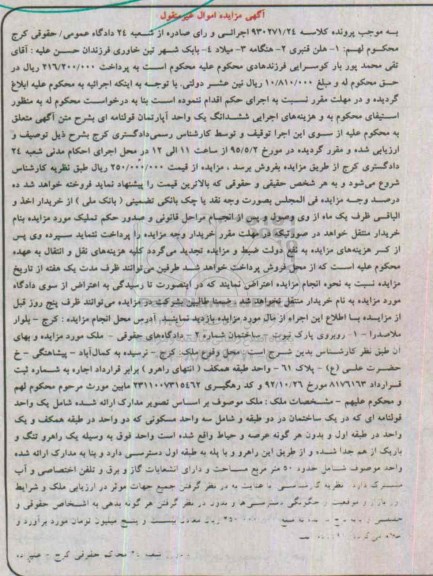 آگهی مزایده اموال غیرمنقول
به موجب پرونده کلاسه ۹۳۰۲۷۱/۲۴ اجرائی و رای صادره از شعبه ۲۴ دادگاه عمومی/ حقوقی کرج
محکوم لهم: ۱- هلن قنبری ۲- هنگامه ۳- میلاد ۴- بابک شهر تین خاوری فرزندان حسن علیه: آقای
تقی محمد پور بار کوسرایی فرزندهادی محکوم علیه محکوم است به پرداخت ۲۱۶/۲۰۰/۰۰۰ ریال در
حق محکوم له و مبلغ ۱۰/۸۱۰/۰۰۰ ریال نین عشر دولتی. با توجه به اینکه اجرائیه به محکوم علیه ابلاغ
گردیده و در مهلت مقرر نسبت به اجرای حکم اقدام ننموده است بنا به درخواست محکوم له به منظور
استیفای محکوم به و هزینه‌های اجرایی ششدانگ یک واحد آپارتمان قولنامه ای بشرح متن آگهی متعلق
به محکوم علیه از سوی این اجرا توقیف و توسط کارشناس رسمی‌دادگستری کرج بشرح ذیل توصیف و
ارزیابی شده و مقرر گردیده در مورخ ۹۵/۵/۲ از ساعت ۱۱ الی ۱۲ در محل اجرای احکام مدنی شعبه ۲۴
دادگستری کرج از طریق مزایده بفروش برسد. مزایده از قیمت ۲۵۰/۰۰۰/۰۰۰ ریال طبق نظریه کارشناس
شروع می‌شود و به هر شخص حقیقی و حقوقی که بالاترین قیمت را پیشنهاد نماید فروخته خواهد شد ده
درصد وجه مزایده فی المجلس بصورت وجه نقد یا چک بانکی تضمینی ( بانک ملی ) از خریدار اخذ و
الباقی ظرف یک ماه از وی وصول و پس از انجام مراحل قانونی و صدور حکم تملیک مورد مزایده بنام
خریدار منتقل خواهد در صورتیکه در مهلت مقرر خریدار وجه مزایده را پرداخت ننماید سپرده وی پس
از کسر هزینه‌های مزایده به نفع دولت ضبط و مزایده تجدید می‌گردد کلیه هزینه‌های نقل و انتقال به عهده
محکوم علیه است که از محل فروش پرداخت خواهد شد طرفین می‌توانند ظرف مدت یک هفته از تاریخ
مزایده نسبت به نحوه انجام مزایده اعتراض نمایند که در اینصورت تا رسیدگی به اعتراض از سوی دادگاه
مورد مزایده به نام خریدار منتقل نخواهد شد. ضمنا طالبین شرکت در مزایده می‌توانند ظرف پنج روز قبل
از مزایده با اطلاع این اجراء از مال مورد مزایده بازدید نمایند. آدرس محل انجام مزایده : کرج - بلوار
ملاصدرا - ۱- روبروی پارک نبوت - ساختمان شماره ۲ - دادگاه‌های حقوقی - ملک مورد مزایده و بهای
آن طبق نظر کارشناس بدین شرح است محل وقوع ملک: کرج - نرسیده به کمال‌آباد - پیشاهنگی - خ
حضرت علی (ع) - پلاک ۶۱ - واحد طبقه همکف ( انتهای راهرو ) برابر قرارداد اجاره به شماره ثبت
قرارداد ۸۱۷۶۱۶۳ مورخ ۹۲/۱۰/۲۶ و کد رهگیری ۲۳۱۱۰۰۷۳۱۵۴۶۲ مابین مورث مرحوم محکوم لهم
و محکوم علیهم - مشخصات ملک : ملک موصوف بر اساس تصویر مدارک ارائه شده شامل یک واحد
قولنامه ای که در یک ساختمان در دو طبقه و شامل سه واحد مسکونی که دو واحد در طبقه همکف و یک
واحد در طبقه اول و بدون هر گونه عرصه و حیاط واقع شده است واحد فوق به وسیله یک راهرو تنگ و
باریک از هم جدا شده و از طریق این راهرو و با پله به طبقه اول دسترسی دارد و بنا به مدارک ارائه شده
واحد موصوف شامل حدود ۵۰ متر مربع مساحت و دارای انشعابات گاز و برق و تلفن اختصاصی و آب
مشترک دارد نظریه کارشناسی با عنایت به در نظر گرفتن جمیع جهات موثر در ارزیابی ملک و شرایط
و موقعیت چگونگی دسترسی‌ها و بدون در نظر گرفتن هر گونه بدهی به اشخاص حقوقی و
ریال معادل بیست و پنج میلیون تومان مورد برآورد و
محاکم حقوقی کرج